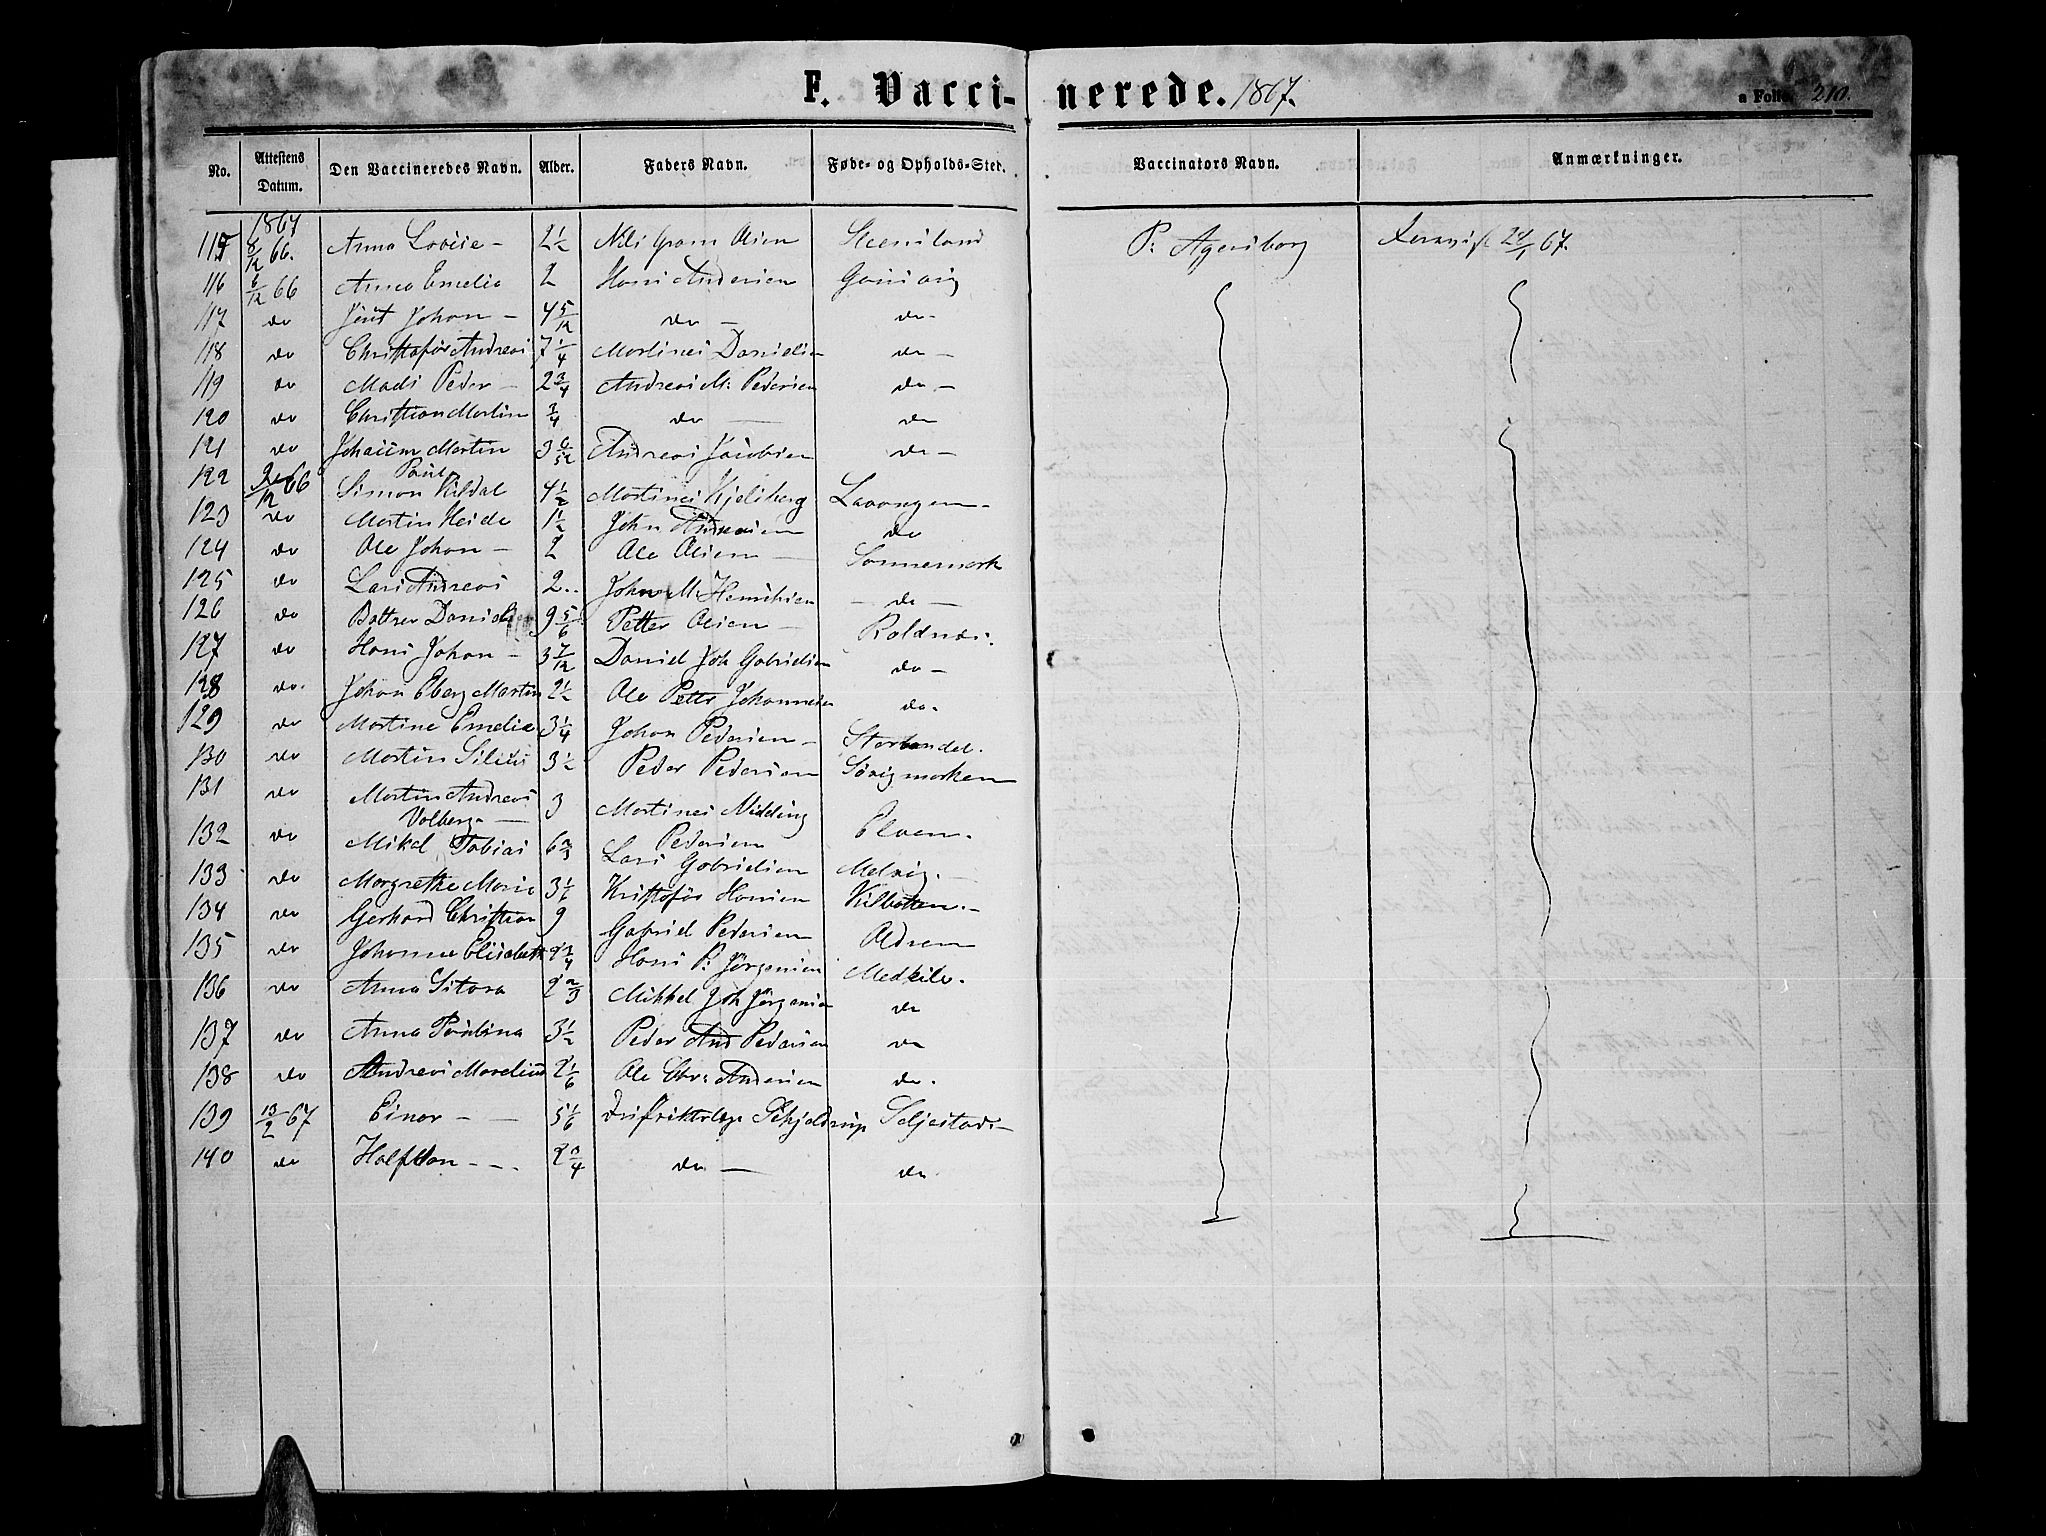 F. Vacci- nerede. 1867.
a Folio. 210.
No. Attestens Datum. Den Vaccineredes Navn. Alder. Faders Navn. Føde- og Opholds-Sted. Vaccinators Navn. Anmærkninger.
1867
115 8/12 66. Anna Lovise - 2 1/2 Nils Gram Olsen Steensland P. Agersborg 24/1 67.
116 6/12 66 Anna Emelie 2 Hans Andersen Gausvig
117 do Jens Johan - 4 5/12 do - do -
118 do Christofer Andreas 7 1/4 Martines Danielsen do -
119 do Mads Peder - 2 3/4 Andreas M. Pedersen do -
120 do Christian Martin 3/4 do - do
121 do Martin 3 Andreas Jacobsen do -
122 /12 66 Simon Paul Kildal 4 1/2 Martines Kjelsberg Lavangen -
123 do Martin Heide 1 1/2 John Andreasen do
124 do Ole Johan - 2 Ole Olsen - Sommermark
125 do Lars Andreas 2 .. Johan M. Henriksen - do -
126 do Daniel 9 5/6 Petter Olsen - Roldnæs.
127 do Hans Johan - 3 7/12 Daniel Joh Gabrielsen do -
128 do. Johan Eberg Martin 2 1/2 Ole Petter Johannesen do.
129 do Martine Emelie 3 1/4 Johan Pedersen - Storbandet.
130 do Martin Silius 3 1/2 Peder Pedersen Sørvigmarken
131 do Martin Andreas Volberg - 3 Martines Nidding Pedersen Elven.
132 do Mikal Tobias 6 2/3 Lars Gabrielsen Melvig. -
133 do Margrethe Marie 3 1/2 Kristofer Hansen Kilbotten. -
134 do Gerhard Christian 9 Gabriel Pedersen
135 do Johanna Elisabeth 2 3/4 Hans P. Jørgensen Medkile.
136 do Anna Sitora 2 2/3 Mikkel Joh Jørgensen do
137 do Anna Paulina 3 1/2 Peder And Pedersen do
138 do Andreas Marelius 2 1/6 Ole Chr: Andersen do.
139 13/2 67 Einar - - 5 1/6 Distriktslæge Schjeldrup Seljestad -
140 do Halfdan - - - 2 3/4 do - do